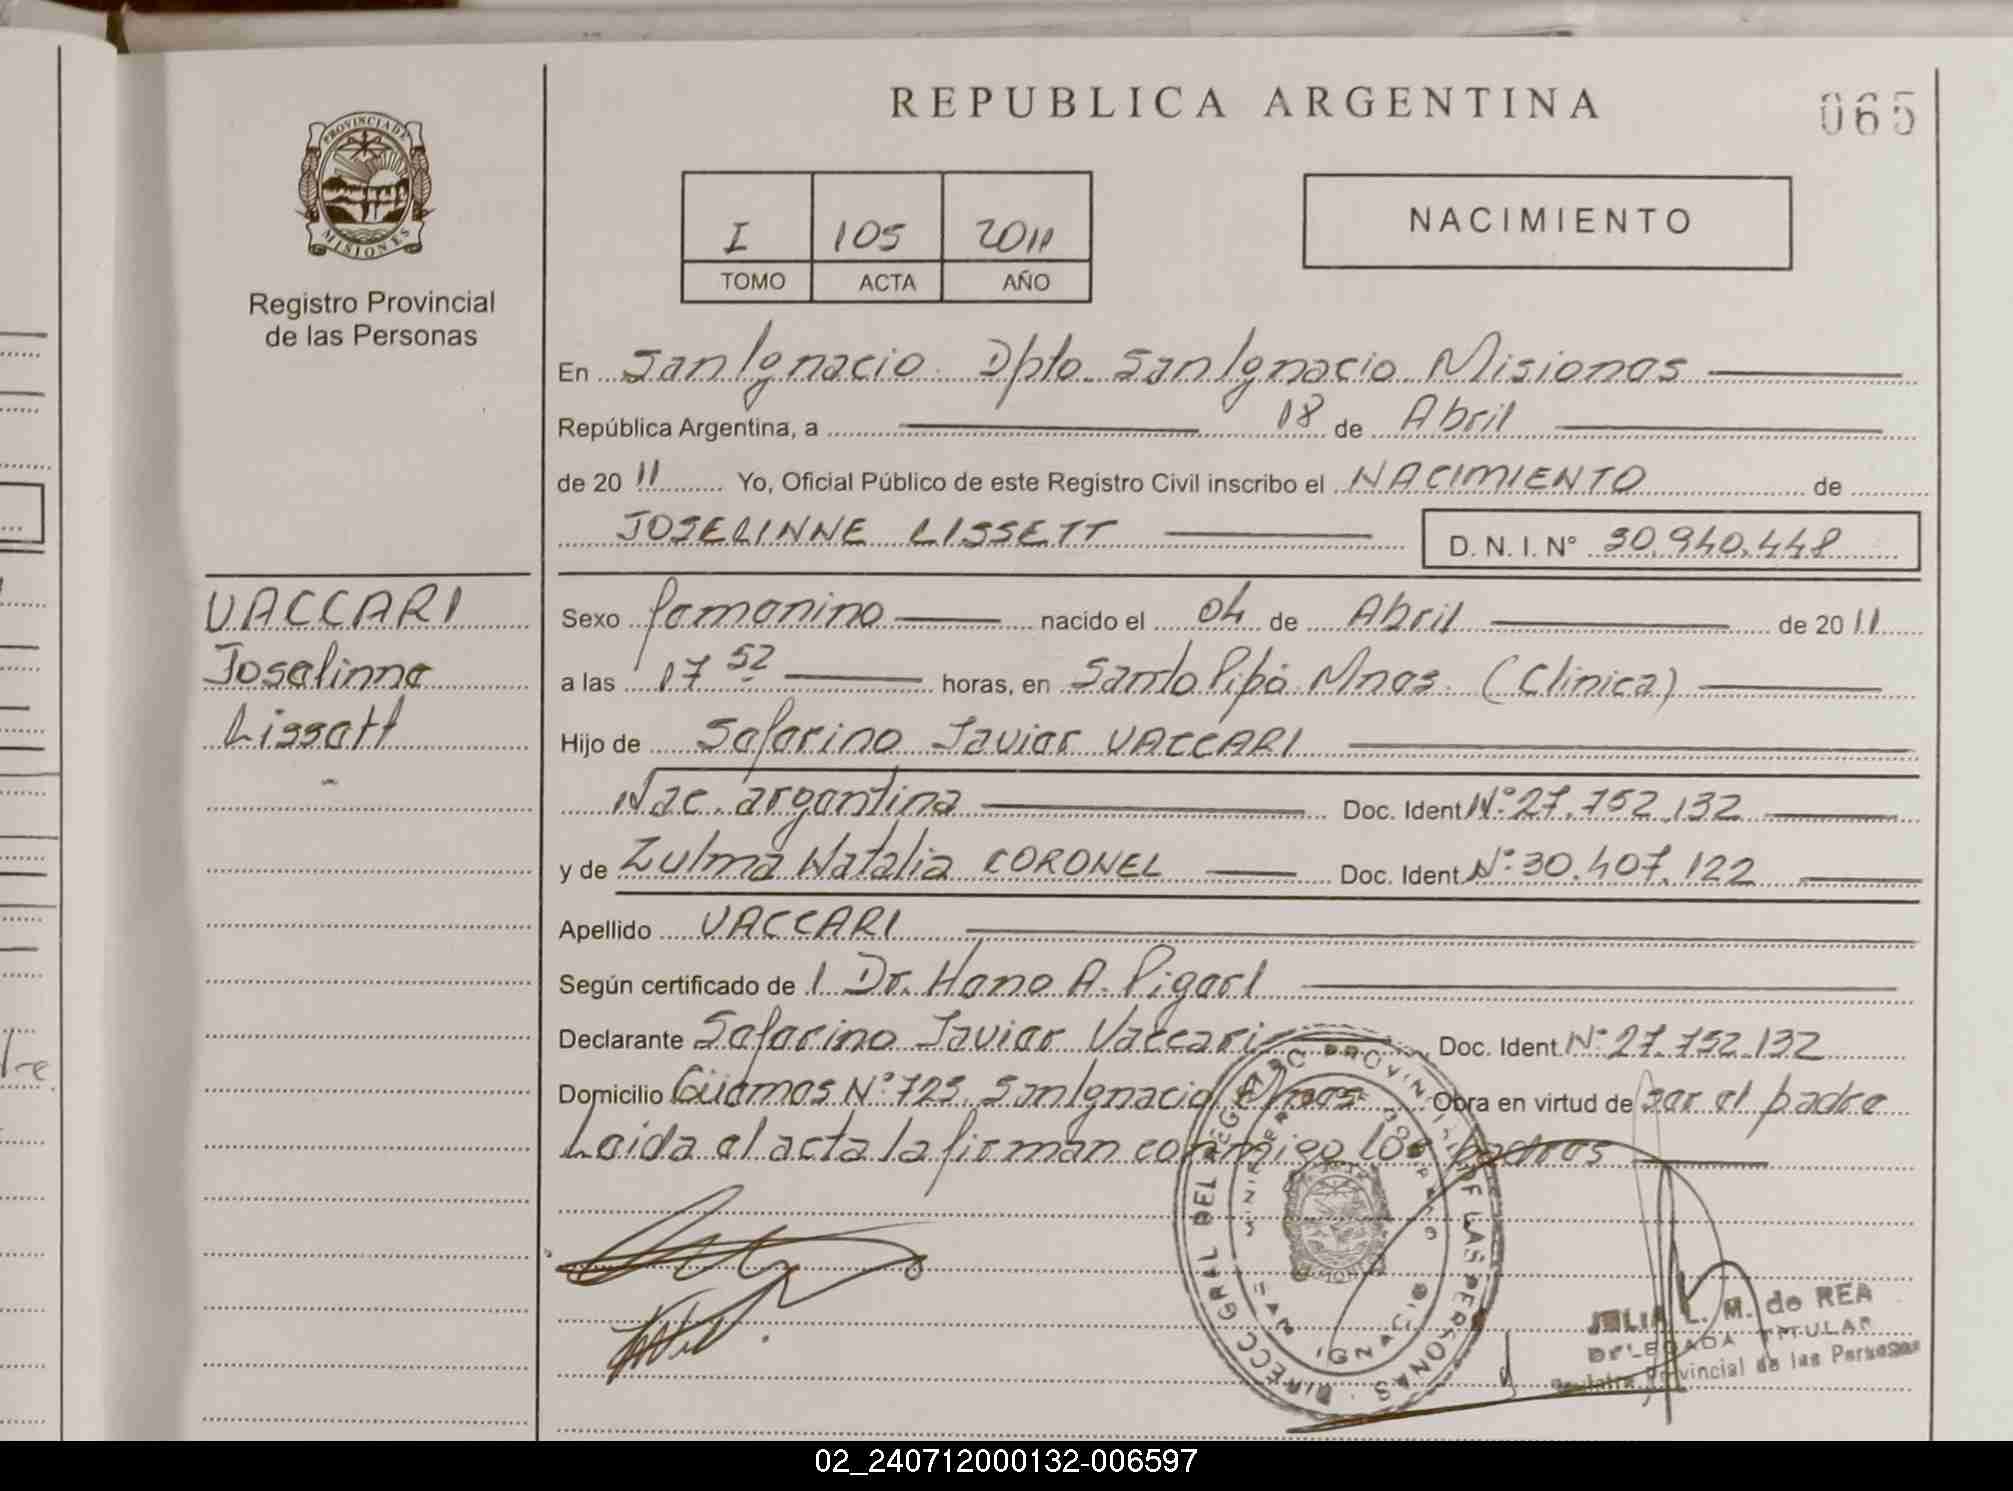 REPUBLICA ARGENTINA
065
PROVINCIA DE
MISIONES
Registro Provincial
de las Personas
I 105 2011
TOMO ACTA AÑO
NACIMIENTO
En San Ignacio Dpto San Ignacio Misiones
República Argentina, a 18 de Abril
de 20 11 Yo, Oficial Público de este Registro Civil inscribo el NACIMIENTO de
JOSELINNE LISSETT D. N. I. N° 50.940.448
VACCARI
Joselinne
Lissett
Sexo femenino nacido el 04 de Abril de 20 11
a las 17 52 horas, en Santo Pipó Mnes. (Clinica)
Hijo de Seferino Javier VACCARI
Nac. argentina Doc. Ident N° 27.752.132
y de Zulma Natalia CORONEL Doc. Ident N° 30.407.122
Apellido VACCARI
Según certificado de l Dr. Hano A.
Declarante Seferino Javier Vaccari Doc. Ident N° 27.752.132
Domicilio Güemes N° 725 San Ignacio Mnes Obra en virtud de ser el padre
Leida el acta la firman conmigo los padres
DIRECC GRAL DEL REGISTRO PROVINCIAL DE LAS PERSONAS
SAN IGNACIO
JULIA L. M. de REA
DELEGADA TITULAR
Provincial de las Personas
02_240712000132-006597